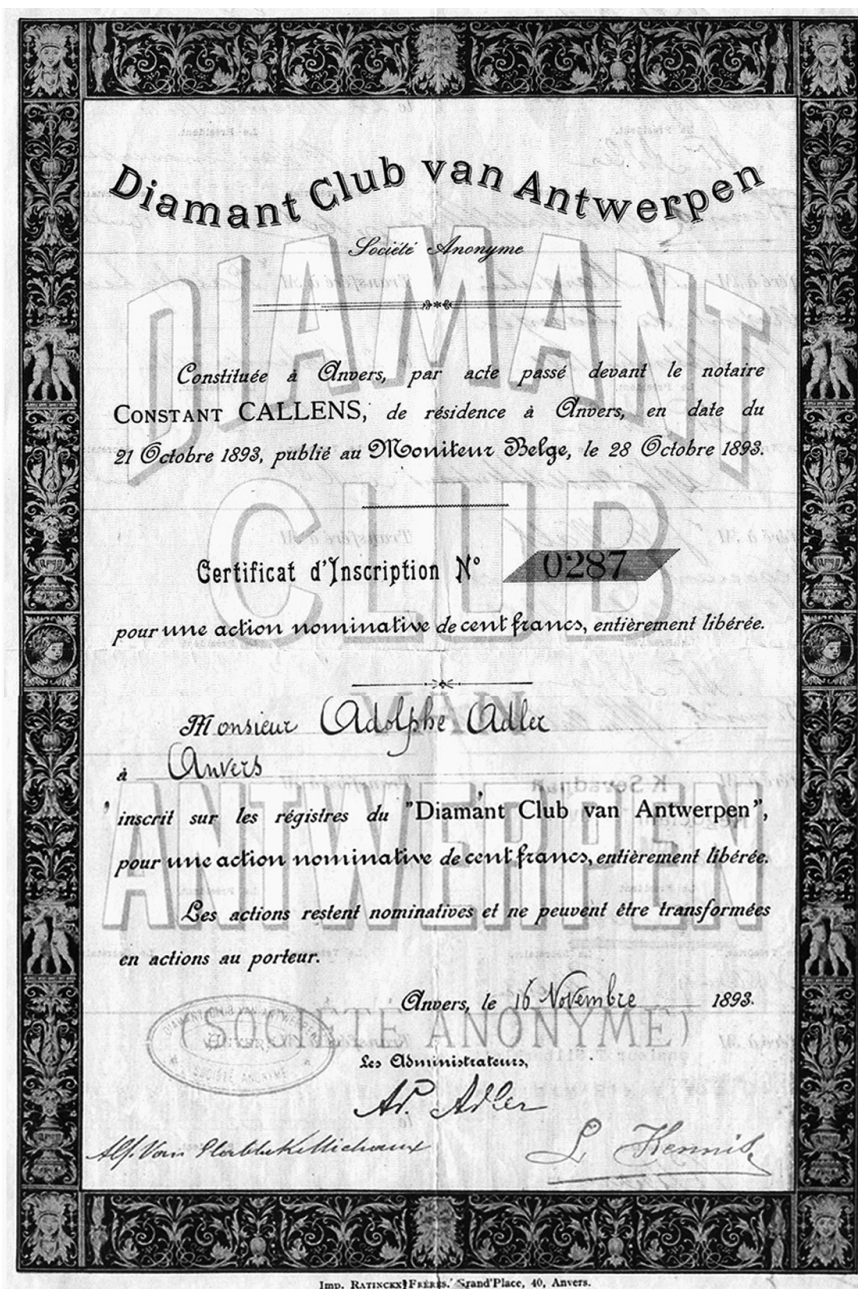 Diamant Club van Antwerpen
Société Anonyme
DIAMANT
CLUB
VAN
ANTWERPEN
(SOCIÉTÉ ANONYME)
Constituée à Anvers, par acte passé devant le notaire
CONSTANT CALLENS, de résidence à Anvers, en date du
21 Octobre 1893, publié au Moniteur Belge, le 28 Octobre 1893.
Certificat d'Inscription N° 0287
pour une action nominative de cent francs, entièrement libérée.
Monsieur Adolphe Adler
à Anvers
inscrit sur les régistres du "Diamant Club van Antwerpen",
pour une action nominative de cent francs, entièrement libérée.
Les actions restent nominatives et ne peuvent être transformées
en actions au porteur.
Anvers, le 16 Novembre 1893.
DIAMANT CLUB VAN ANTWERPEN
ANVERS
SOCIÉTÉ ANONYME
Les Administrateurs,
Ad. Adler
Alf. Van Michaux
L Kennis
Imp. RATINCKX FRÈRES, Grand'Place, 40, Anvers.